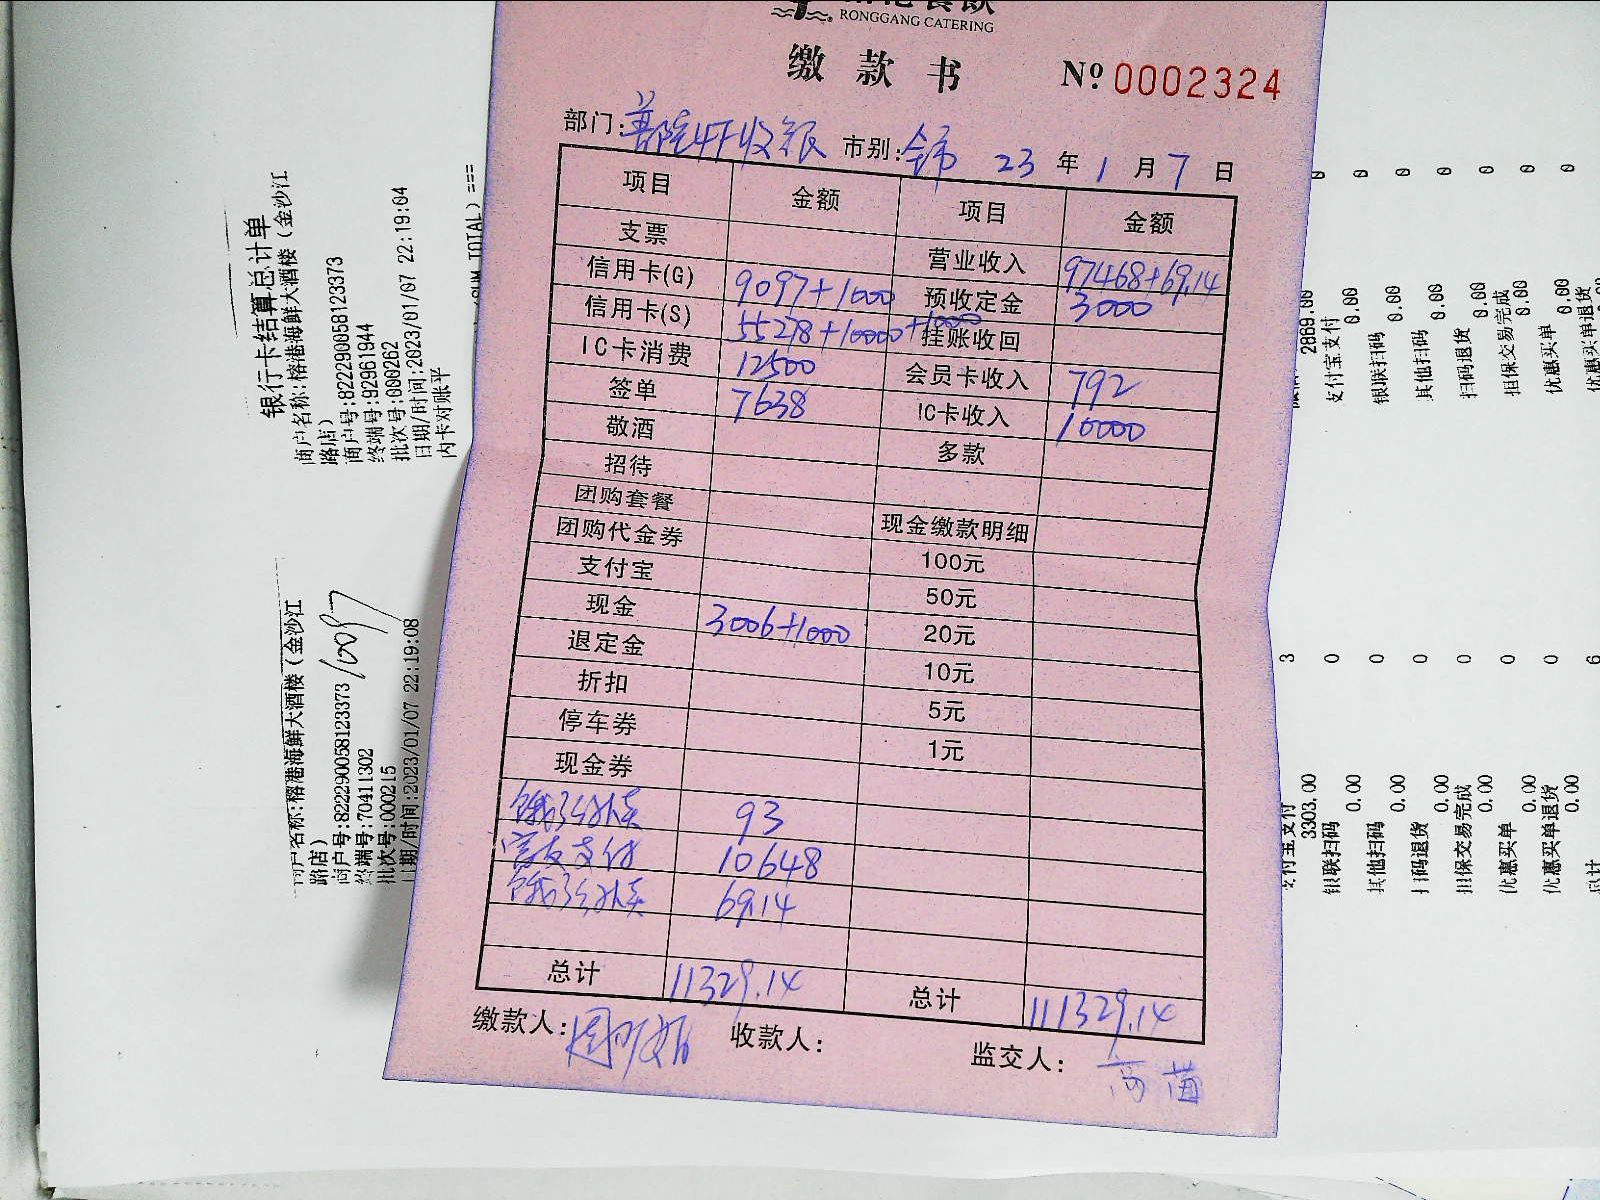 RONGGANG CATERING
缴款书 Nº 0002324
部门: 普陀4F收银 市别: 全市 23 年 1 月 7 日
项目 金额 项目 金额
支票 营业收入 97468+69.14
信用卡(G) 9097+1000 预收定金 3000
信用卡(S) 55278+10000+1000 挂账收回
IC卡消费 12500 会员卡收入 792
签单 7638 IC卡收入 10000
敬酒 多款
招待
团购套餐 现金缴款明细
团购代金券 100元
支付宝 50元
现金 3006+1000 20元
退定金 10元
折扣 5元
停车券 1元
现金券
饿了么外卖 93
支付 10648
饿了么外卖 69.14
总计 11329.14 总计 111329.14
缴款人: 收款人: 监交人:
银行卡结算总计单
商户名称:榕港海鲜大酒楼(金沙江
路店)
商户号:822290058123373
终端号:92961944
批次号:000262
日期/时间:2023/01/07 22:19:04
内卡对账平
商户名称:榕港海鲜大酒楼(金沙江
路店)
商户号:822290058123373
10097
终端号:70411302
批次号:000215
日期/时间:2023/01/07 22:19:08
2869.00
支付宝支付 0
0.00
银联扫码 0
0.00
其他扫码 0
0.00
扫码退货 0
0.00
担保交易完成 0
0.00
优惠买单 0
0.00
优惠买单退货
支付宝支付 3
3303.00
银联扫码 0
0.00
其他扫码 0
0.00
扫码退货 0
0.00
担保交易完成 0
0.00
优惠买单 0
0.00
优惠买单退货 0
0.00
总计 6